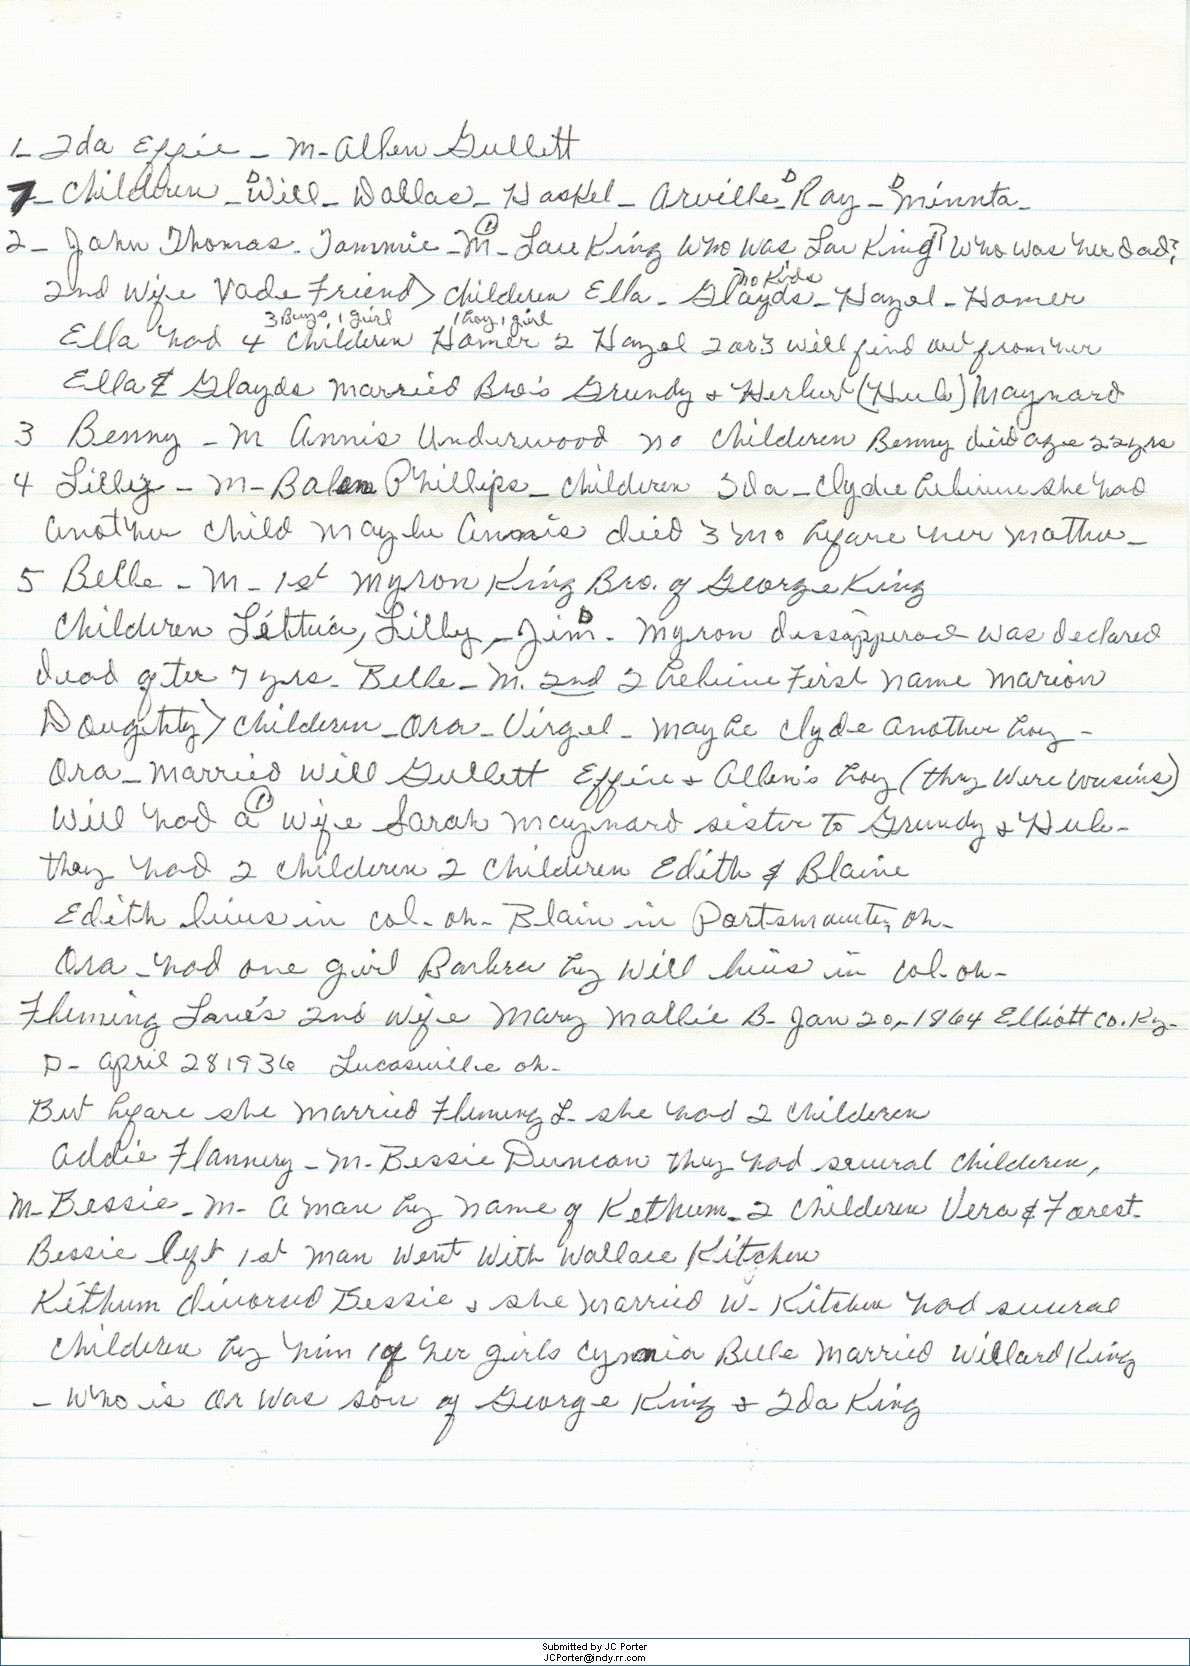 1- Ida Effie - M- Allen Gullett
7- Children - D Will - Dallas - Haskel - Arville - D Ray - D Minnta -
2- John Thomas - Tommie - M (1) - Lou King Who was Lou King? Who was her dad?
2nd Wife Vade Friend > children Ella - Glayds - no Kids Hazel - Homer
Ella had 4 children 3 Buys, 1 girl Homer 2 1 boy, 1 girl Hazel 2 or 3 will find out from her
Ella & Glayds married Bro's Grundy & Herbert (Hub) Maynard
3 Benny - M Annis Underwood no children Benny died age 22 yrs
4 Lilly - M- Balen Phillips - children Ida - Clydie I believe she had
another child maybe Annis died 3 mo before her mother -
5 Belle - M- 1st Myron King Bro. of George King
children Lettua, Lilly, - Jim D - Myron dissappeared was declared
dead after 7 yrs - Belle - M. 2nd I believe First name Marion
Doughty > children - Ora - Virgel - maybe Clyde another boy -
Ora - married Will Gullett Effie & Allen's boy (they were cousins)
Will had a (1) wife Sarah Maynard sister to Grundy & Hub -
they had 2 children 2 children Edith & Blaine
Edith lives in col- oh- Blain in Portsmouth, oh-
Ora - had one girl Barbra by Will lives in col- oh-
Fleming Lowe's 2nd wife Mary Mallie B- Jan 20, -1864 Elliott Co. Ky-
D- April 28 1936 Lucasville oh-
But before she married Fleming L- she had 2 children
Addie Flannery - M- Bessie Duncan they had several children,
M- Bessie - M- A man by name of Kethum - 2 children Vera & Forest-
Bessie left 1st man went with Wallace Kitchen
Kethum divorsed Bessie & she married W- Kitchen had several
children by him 1 of her girls Belle married Willard King
- Who is or was son of George King & Ida King
Submitted by JC Porter
JCPorter@indy.rr.com